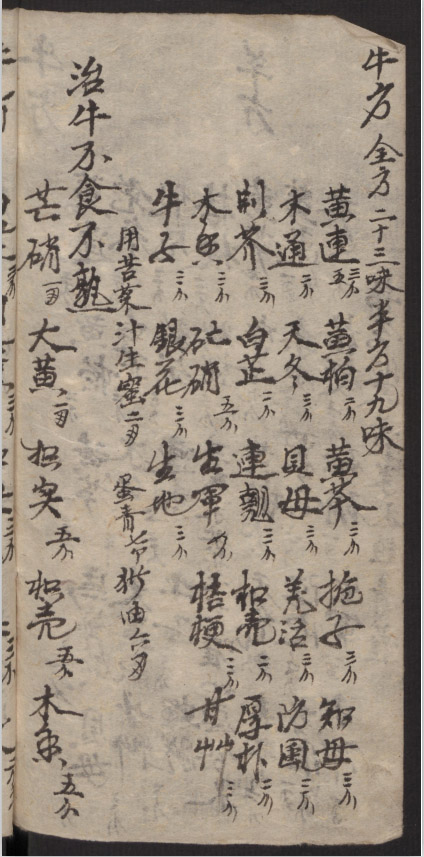 牛方 全方二十三味半方十九味
黄連三分五 黄柏二分 黄芩三分 梔子三分 知母三分
木通二分 天冬三分 貝母三分 羌活三分 防風二分
荆芥三分 白芷二分 連翹三分 枳壳二分 厚朴二分
木香三分 芒硝五分 生軍八分 桔梗三分 甘艸三分
牛子三分 銀花三分 生地三分
用苦菜汁生蜜二两 蛋青七个 油六两
治牛不食不熟
芒硝一两 大黄二两 枳实五分 枳壳五分 木香五分